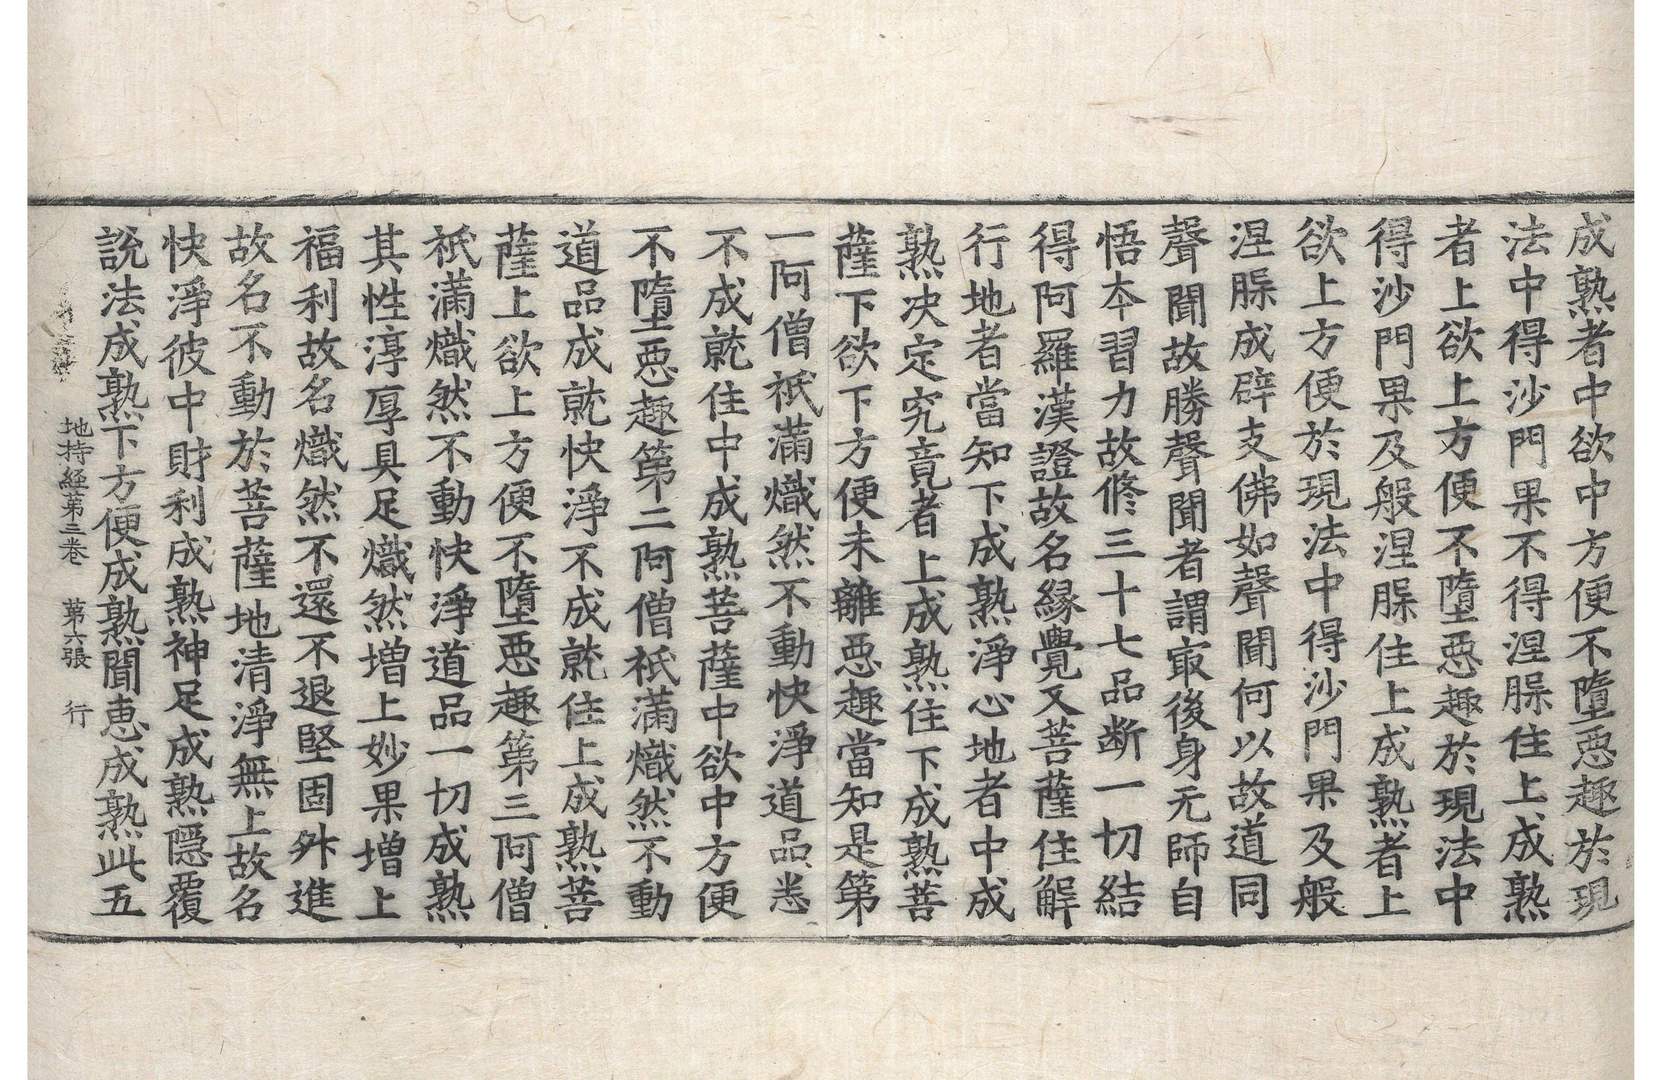 成熟者中欲中方便不墮惡趣於現
法中得沙門果不得涅槃住上成熟
者上欲上方便不墮惡趣於現法中
得沙門果及般涅槃住上成熟者上
欲上方便於現法中得沙門果及般
涅槃成辟支佛如聲聞何以故道同
聲聞故勝聲聞者謂㝡後身无師自
悟本習力故修三十七品断一切結
得阿羅漢證故名緣覺又菩薩住解
行地者當知下成熟淨心地者中成
熟決定究竟者上成熟住下成熟菩
薩下欲下方便未離惡趣當知是第
一阿僧祇滿熾然不動快淨道品悉
不成就住中成熟菩薩中欲中方便
不墮惡趣第二阿僧祇滿熾然不動
道品成就快淨不成就住上成熟菩
薩上欲上方便不墮惡趣第三阿僧
祇滿熾然不動快淨道品一切成熟
其性淳厚具足熾然增上妙果增上
福利故名熾然不還不退堅固外進
故名不動於菩薩地清淨無上故名
快淨彼中財利成熟神足成熟隱覆
說法成熟下方便成熟聞恵成熟此五
地持経第三卷　第六張　行